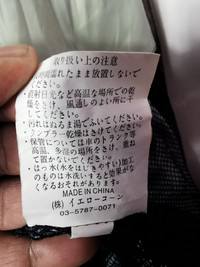 取り扱い上の注意
濡れたまま放置しないで
ください。
・直射日光など高温な場所での乾
燥をさけ、風通しのよい所に干
してください。
・汚れはぬるま湯でふいてください。
タンブラー乾燥はさけてください。
・保管については車のトランク等
高温、多湿の場所をさけ、重ね
て置かないでください。
・はっ水(水をはじきやすい)加工
のものは水洗いすると効果がな
くなるおそれがあります。
MADE IN CHINA
(株)イエローコーン
03-5787-0071